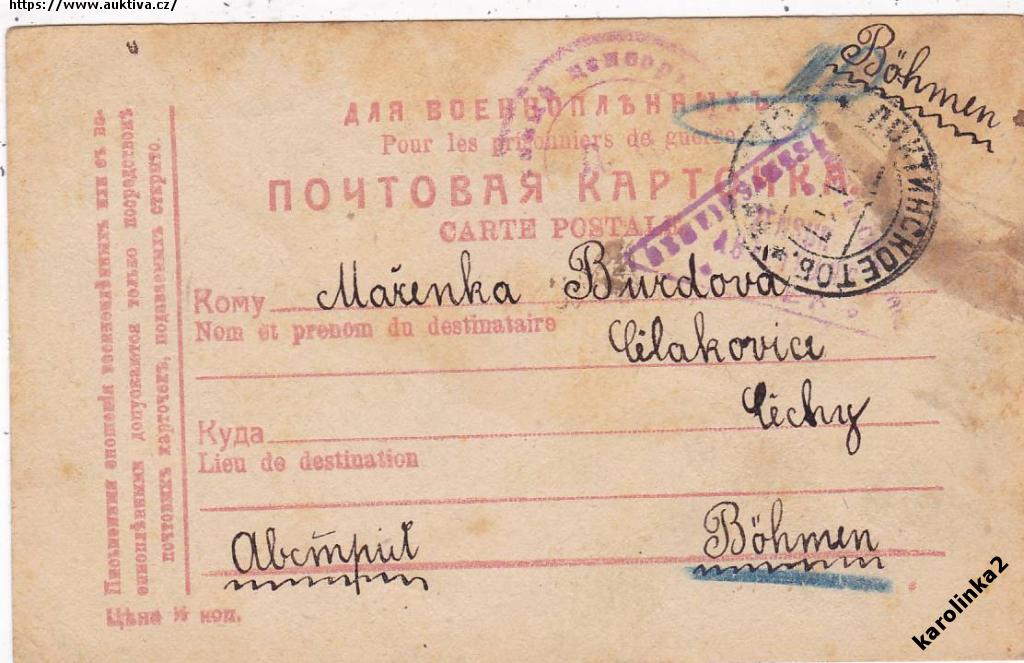 https://www.auktiva.cz/
Böhmen
ДЛЯ ВОЕННОПЛѢННЫХЪ
Pour les prisonniers de guerre
ПОЧТОВАЯ КАРТОЧКА
CARTE POSTALE
Кому Mařenka Burdova
Nom et prenom du destinataire
Čelakovice
Čechy
Куда
Lieu de destination
Австрия Böhmen
Письменныя сношенія военноплѣнныхъ или съ во-
енноплѣнными допускаются только посредствомъ
почтовыхъ карточекъ, подаваемыхъ открыто.
Цѣна ½ коп.
karolinka2